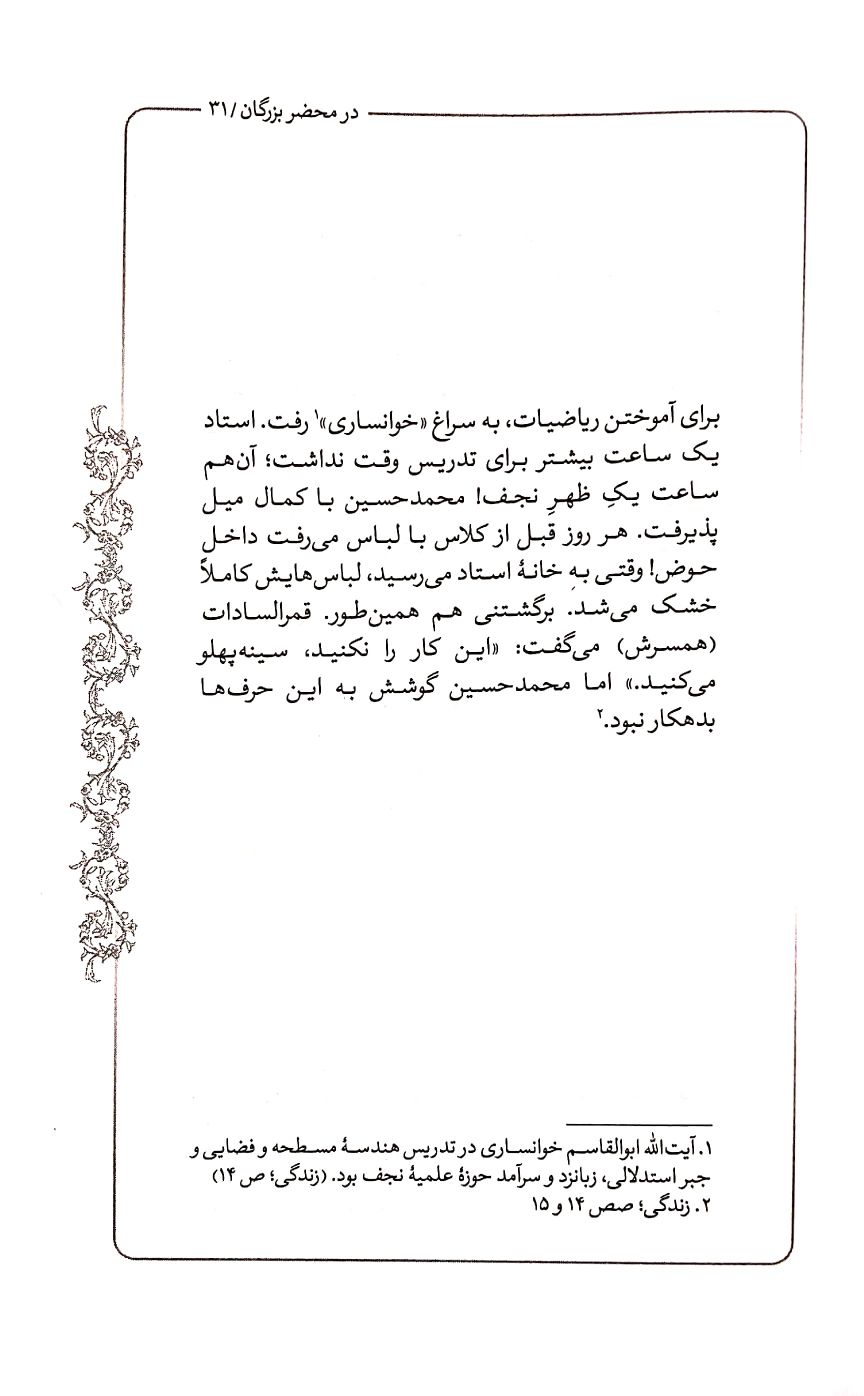 در محضر بزرگان / ۳۱
برای آموختن ریاضیات، به سراغ «خوانساری»۱ رفت. استاد
یک ساعت بیشتر برای تدریس وقت نداشت؛ آن‌هم
ساعت یکِ ظهرِ نجف! محمدحسین با کمال میل
پذیرفت. هر روز قبل از کلاس با لباس می‌رفت داخل
حوض! وقتی به خانهٔ استاد می‌رسید، لباس‌هایش کاملاً
خشک می‌شد. برگشتنی هم همین‌طور. قمرالسادات
(همسرش) می‌گفت: «این کار را نکنید، سینه‌پهلو
می‌کنید.» اما محمدحسین گوشش به این حرف‌ها
بدهکار نبود.۲
۱. آیت‌الله ابوالقاسم خوانساری در تدریس هندسهٔ مسطحه و فضایی و
جبر استدلالی، زبانزد و سرآمد حوزهٔ علمیهٔ نجف بود. (زندگی؛ ص ۱۴)
۲. زندگی؛ صص ۱۴ و ۱۵